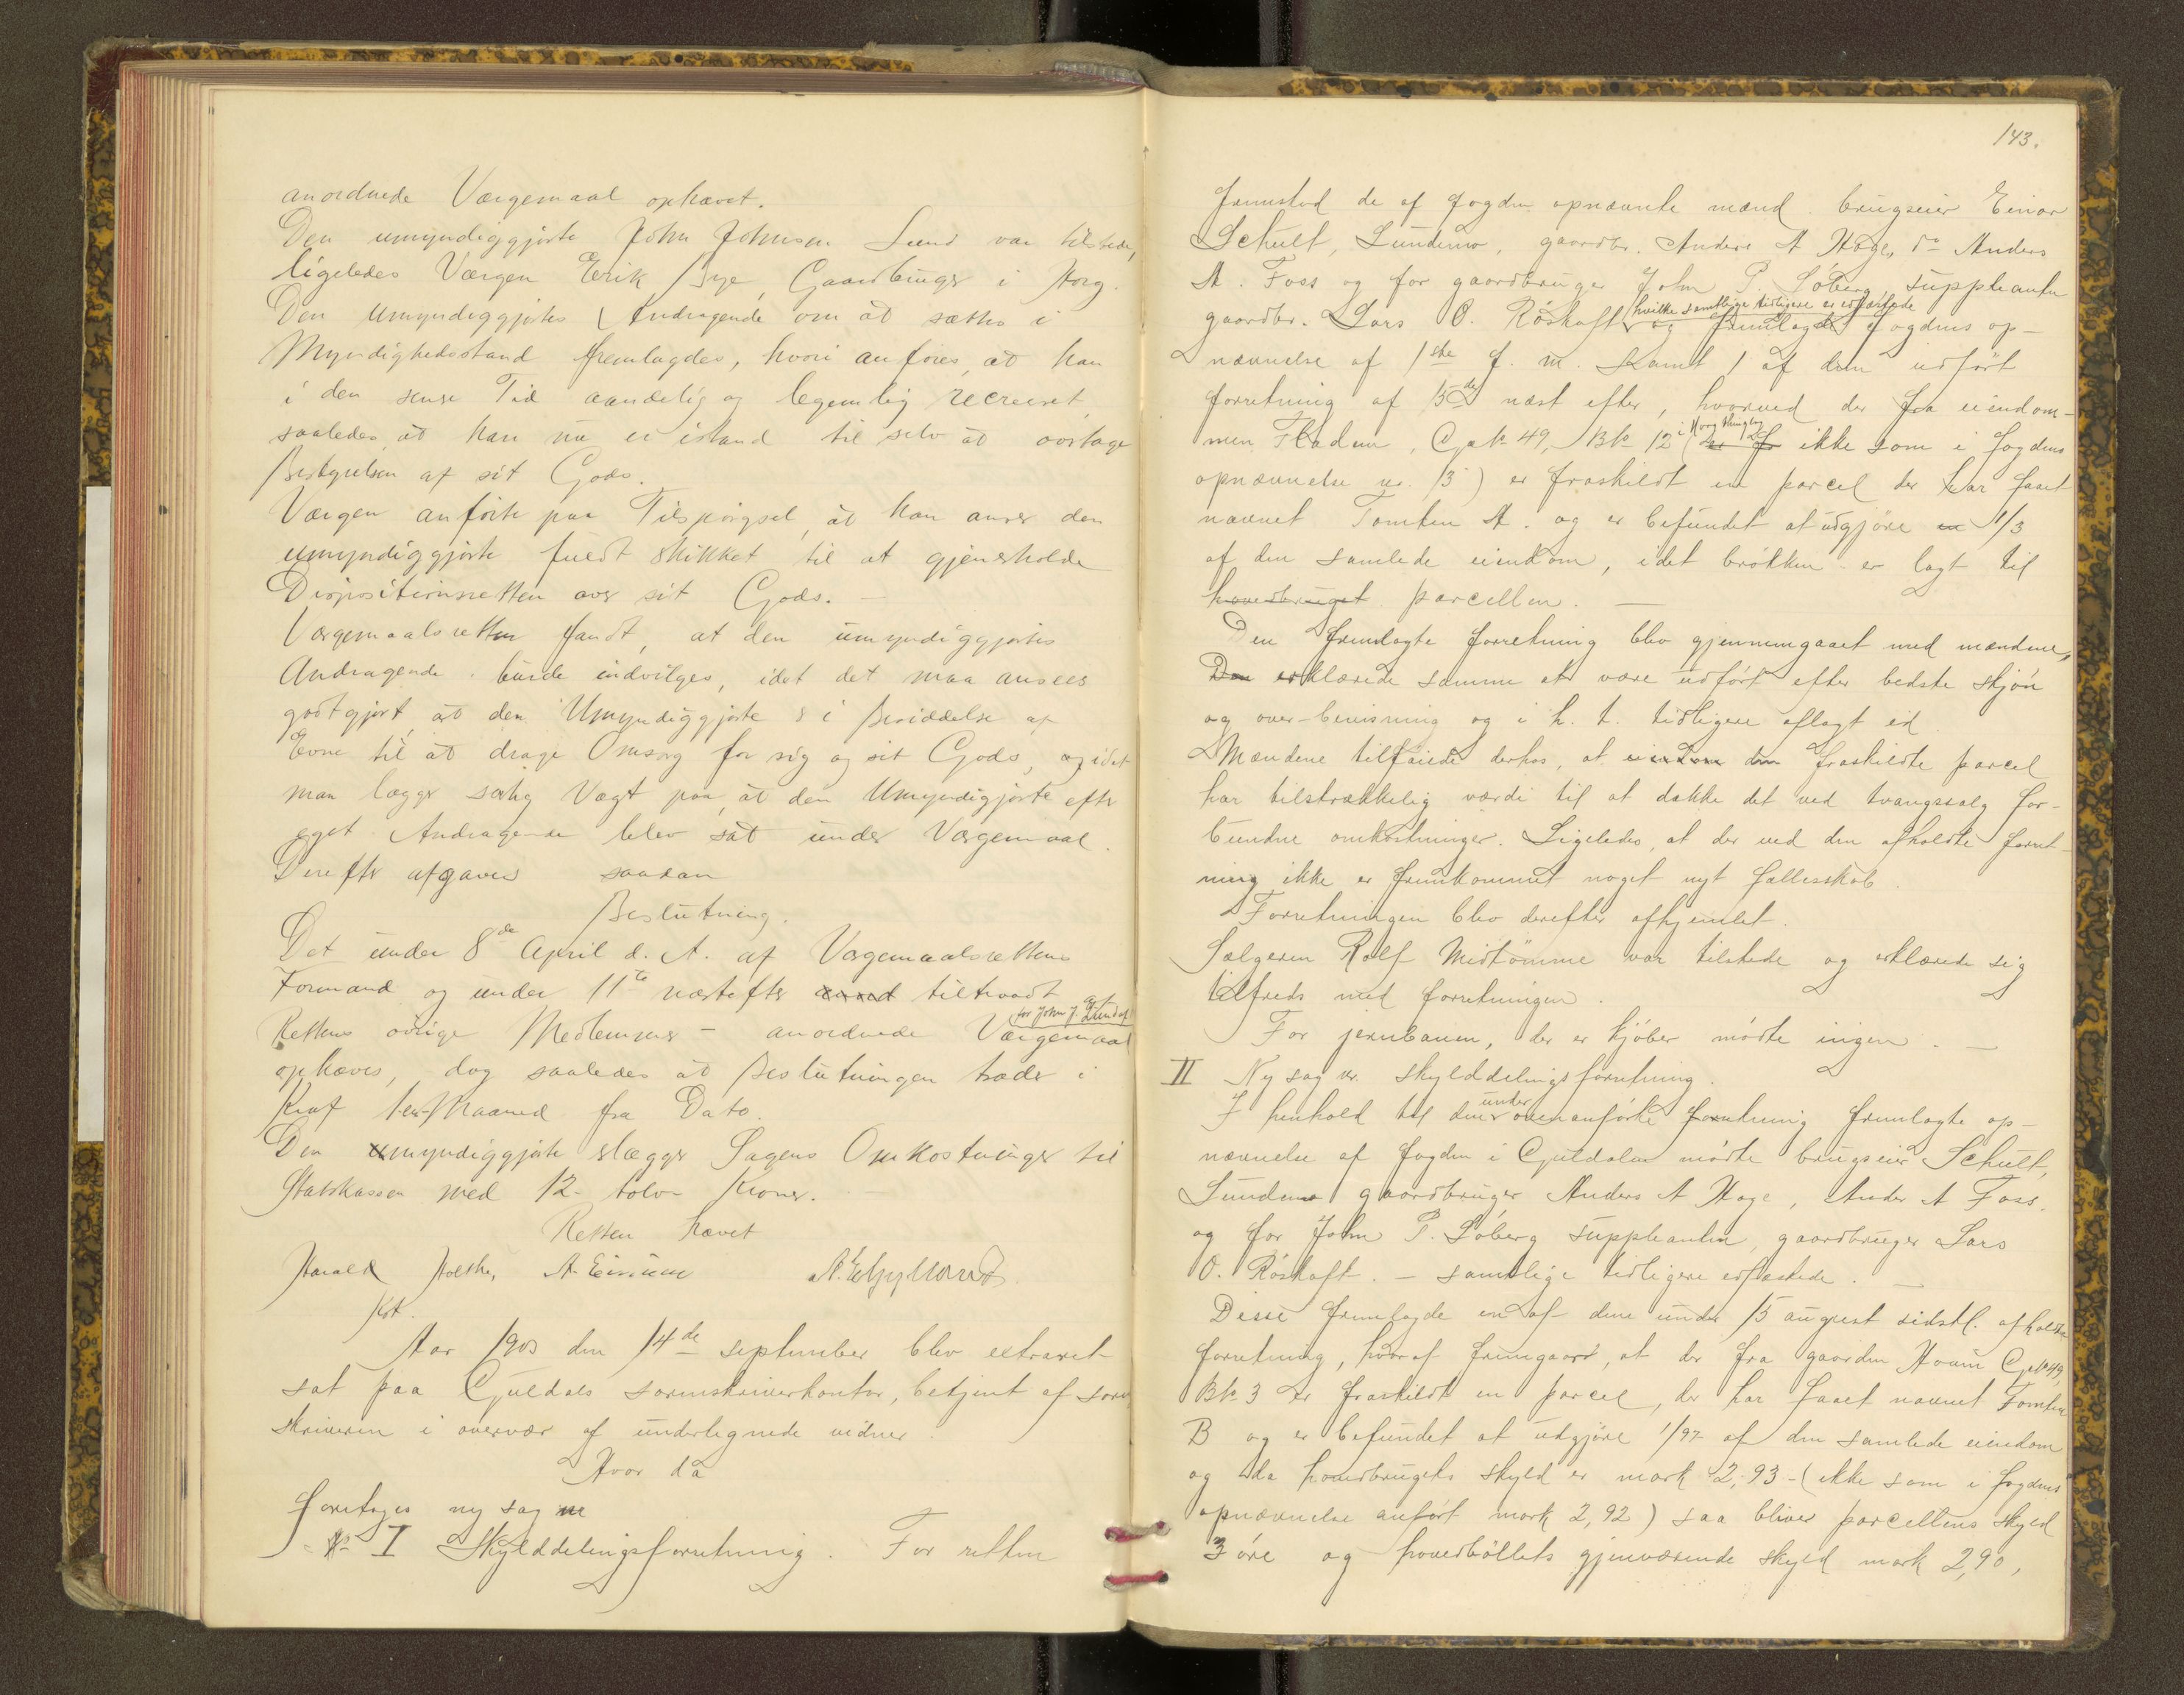 anordnede Værgemaal ophævet.
Den umyndiggjorte John Johnsen Lund var tilstede,
ligeledes Værgen Erik Bye, Gaardbruger i Horg.
Den Umyndiggjortes Andragende om at sættes i
Myndighedsstand fremlagdes, hvori anføres, at han
i den senere Tid aandelig og legemlig recreeret,
saaledes at han nu er istand til selv at overtage
Bestyrelsen af sit Gods.
Værgen anførte paa Tilspørgsel, at han anser den
umyndiggjorte fuldt skikket til at gjenerholde
Dispositionsretten over sit Gods. —
Værgemaalsretten fandt, at den umyndiggjortes
Andragende burde indvilges, idet det maa ansees
godtgjort, at den Umyndiggjorte er i Besiddelse af
Evne til at drage Omsorg for sig og sit Gods, og idet
man lægger særlig Vægt paa, at den Umyndiggjorte efter
eget Andragende blev sat under Værgemaal.
Derefter afgaves saadan
Beslutning.
Det under 8de April d. A. af Værgemaalsrettens
Formand og under 11te næstefter tiltraadt af
Rettens øvrige Medlemmer – anordnede Værgemaal for John J. Lund
ophæves, dog saaledes at Beslutningen træder i
Kraft 1 en Maaned fra Dato.
Den umyndiggjorte erlægger Sagens Omkostninger til
Statskassen med 12 - tolv - Kroner. —
Retten hævet
Harald Holthe, A. Eirum A. E. Gylland
Kst.
Aar 1903 den 14de september blev extraret
sat paa Guldals sorenskriverkontor, betjent af soren
skriveren i overvær af undertegnede vidner.
Hvor da
foretoges ny sag
No I Skylddelingsforretning. For retten
143.
fremstod de af fogden opnævnte mænd. brugseier Einar
Schult, Sundmo, gaardbr. Anders A Hage, do Anders
A. Foss og for gaardbruger John P. Søberg, suppleanten
gaardbr. Lars O. Røskaft hvilke samtlige tidligere er edfæstede og fremlagde fogdens op-
nævnelse af 1ste f. m. samt 1 af dem udført
forretning af 15de næst efter, hvorved der fra eiendom-
men Fladen, Gak 49, Bk 12 i Horg thinglag (ikke som i fogdens
opnævnelse nr. 13) er fraskildt en parcel der har faaet
navnet Tomten A. og er befundet at udgjøre 1/3
af den samlede eiendom, idet brøkken er lagt til
hovedbruget parcellen. —
Den fremlagte forretning blev gjennemgaaet med mændene,
Den erklærede samme at være udført efter bedste skjøn
og over-bevisning og i h. t. tidligere aflagt ed.
Mændene tilføiede derhos, at den fraskildte parcel
har tilstrækkelig værdi til at dække det ved tvangssalg for-
bundne omkostninger. Ligeledes, at der ved den afholdte forret-
ning ikke er fremkommet noget nyt fællesskab.
Forretningen blev derefter afhjemlet.
Sælgeren Rolf Midtømme var tilstede og erklærede sig
tilfreds med forretningen.
For jernbanen, der er kjøber mødte ingen. —
II Ny sag nr. skylddelingsforretning.
I henhold til den under ovenanførte forretning fremlagte op-
nævnelse af fogden i Guldalen mødte brugseier Schult,
Sundmo gaardbruger Anders A Hage, Anders A Foss.
og for John P. Søberg suppleanten, gaardbruger Lars
O. Røskaft. – samtlige tidligere edfæstede. —
Disse fremlagde en af dem under 15 august sidstl. afholdte
forretning, hvoraf fremgaard, at der fra gaarden Hovin Gak 49,
Bk. 3 er fraskildt en parcel, der har faaet navnet Tomten
B og er befundet at udgjøre 1/97 af den samlede eiendom
og da hovedbrugets skyld er mark 2,93 - (ikke som i fogdens
opnævnelse anført mark 2,92) saa bliver parcellens skyld
3 øre og hovedbøllets gjenværende skyld mark 2,90,